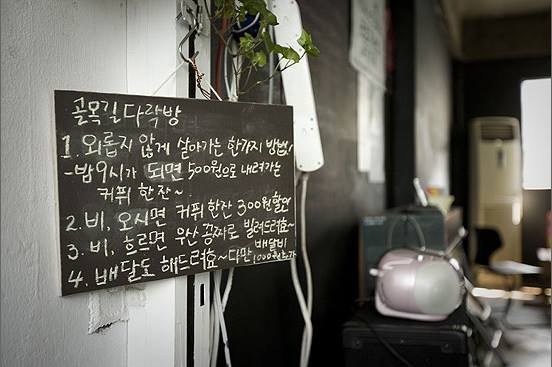 골목길 다락방
1. 외롭지 않게 살아가는 한가지 방법!
-밤 9시가 되면 500원으로 내려가는
커퓌 한잔~
2. 비, 오시면 커퓌한잔 300원할인
3. 비, 흐르면 우산 꽁짜로 빌려드려요~
4. 배달도 해드려요~ 다만 배달비